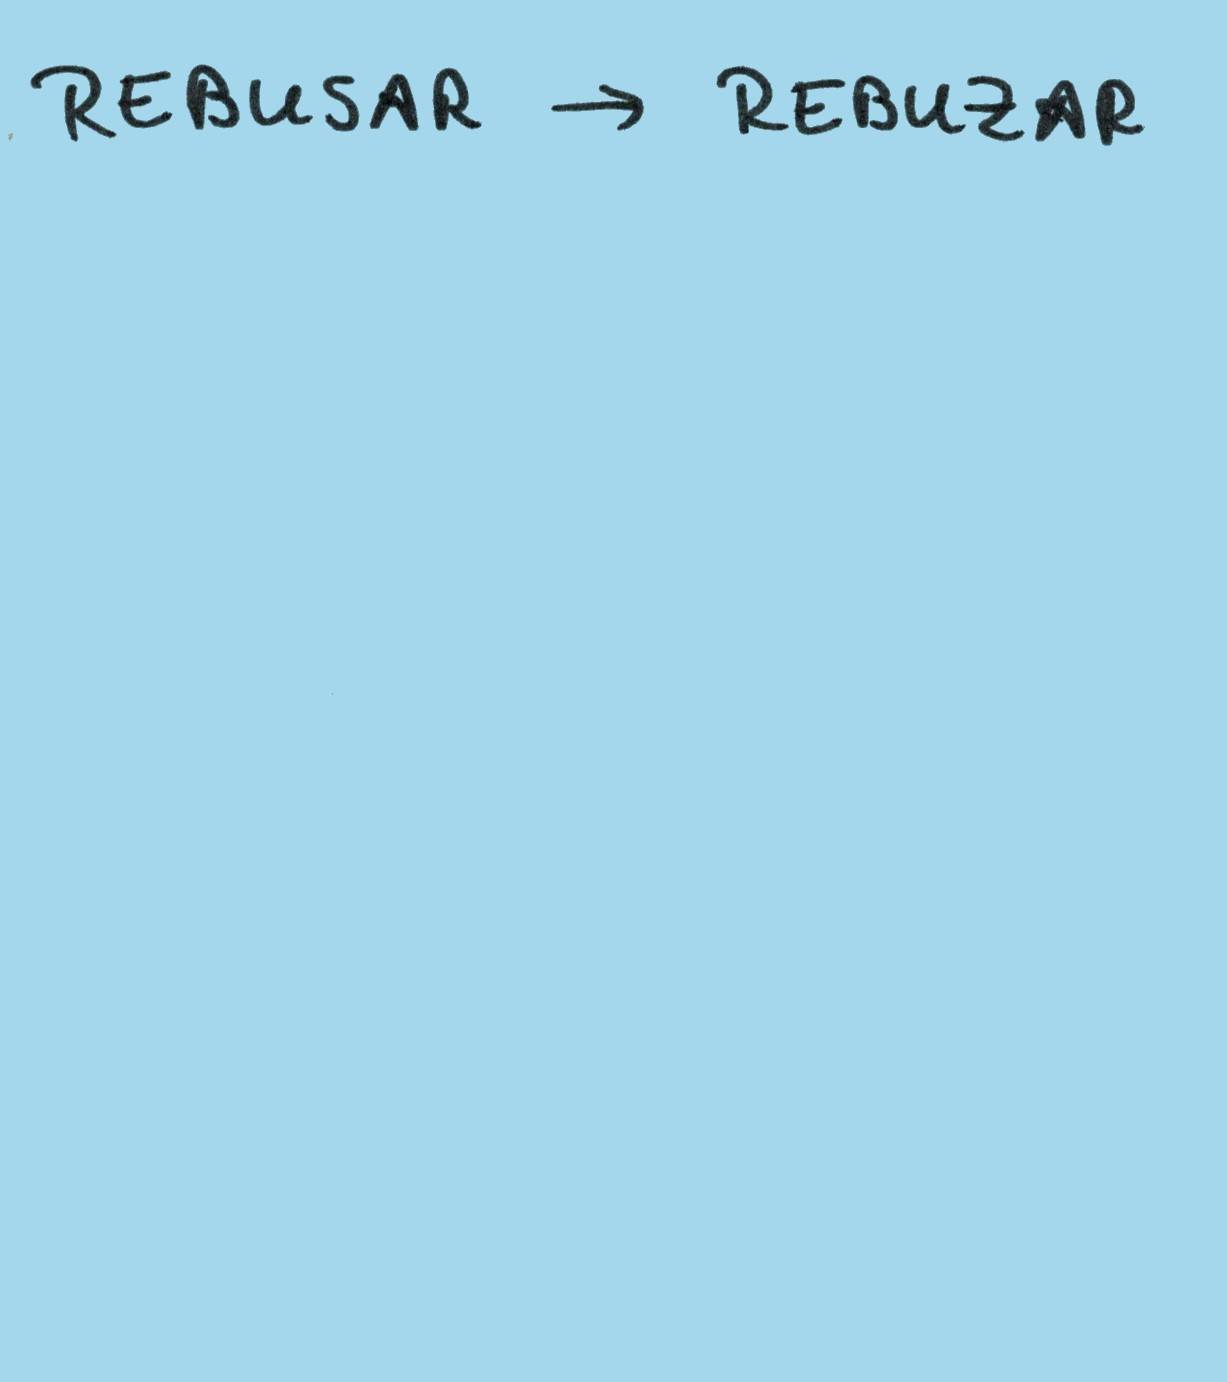 REBUSAR → REBUZAR